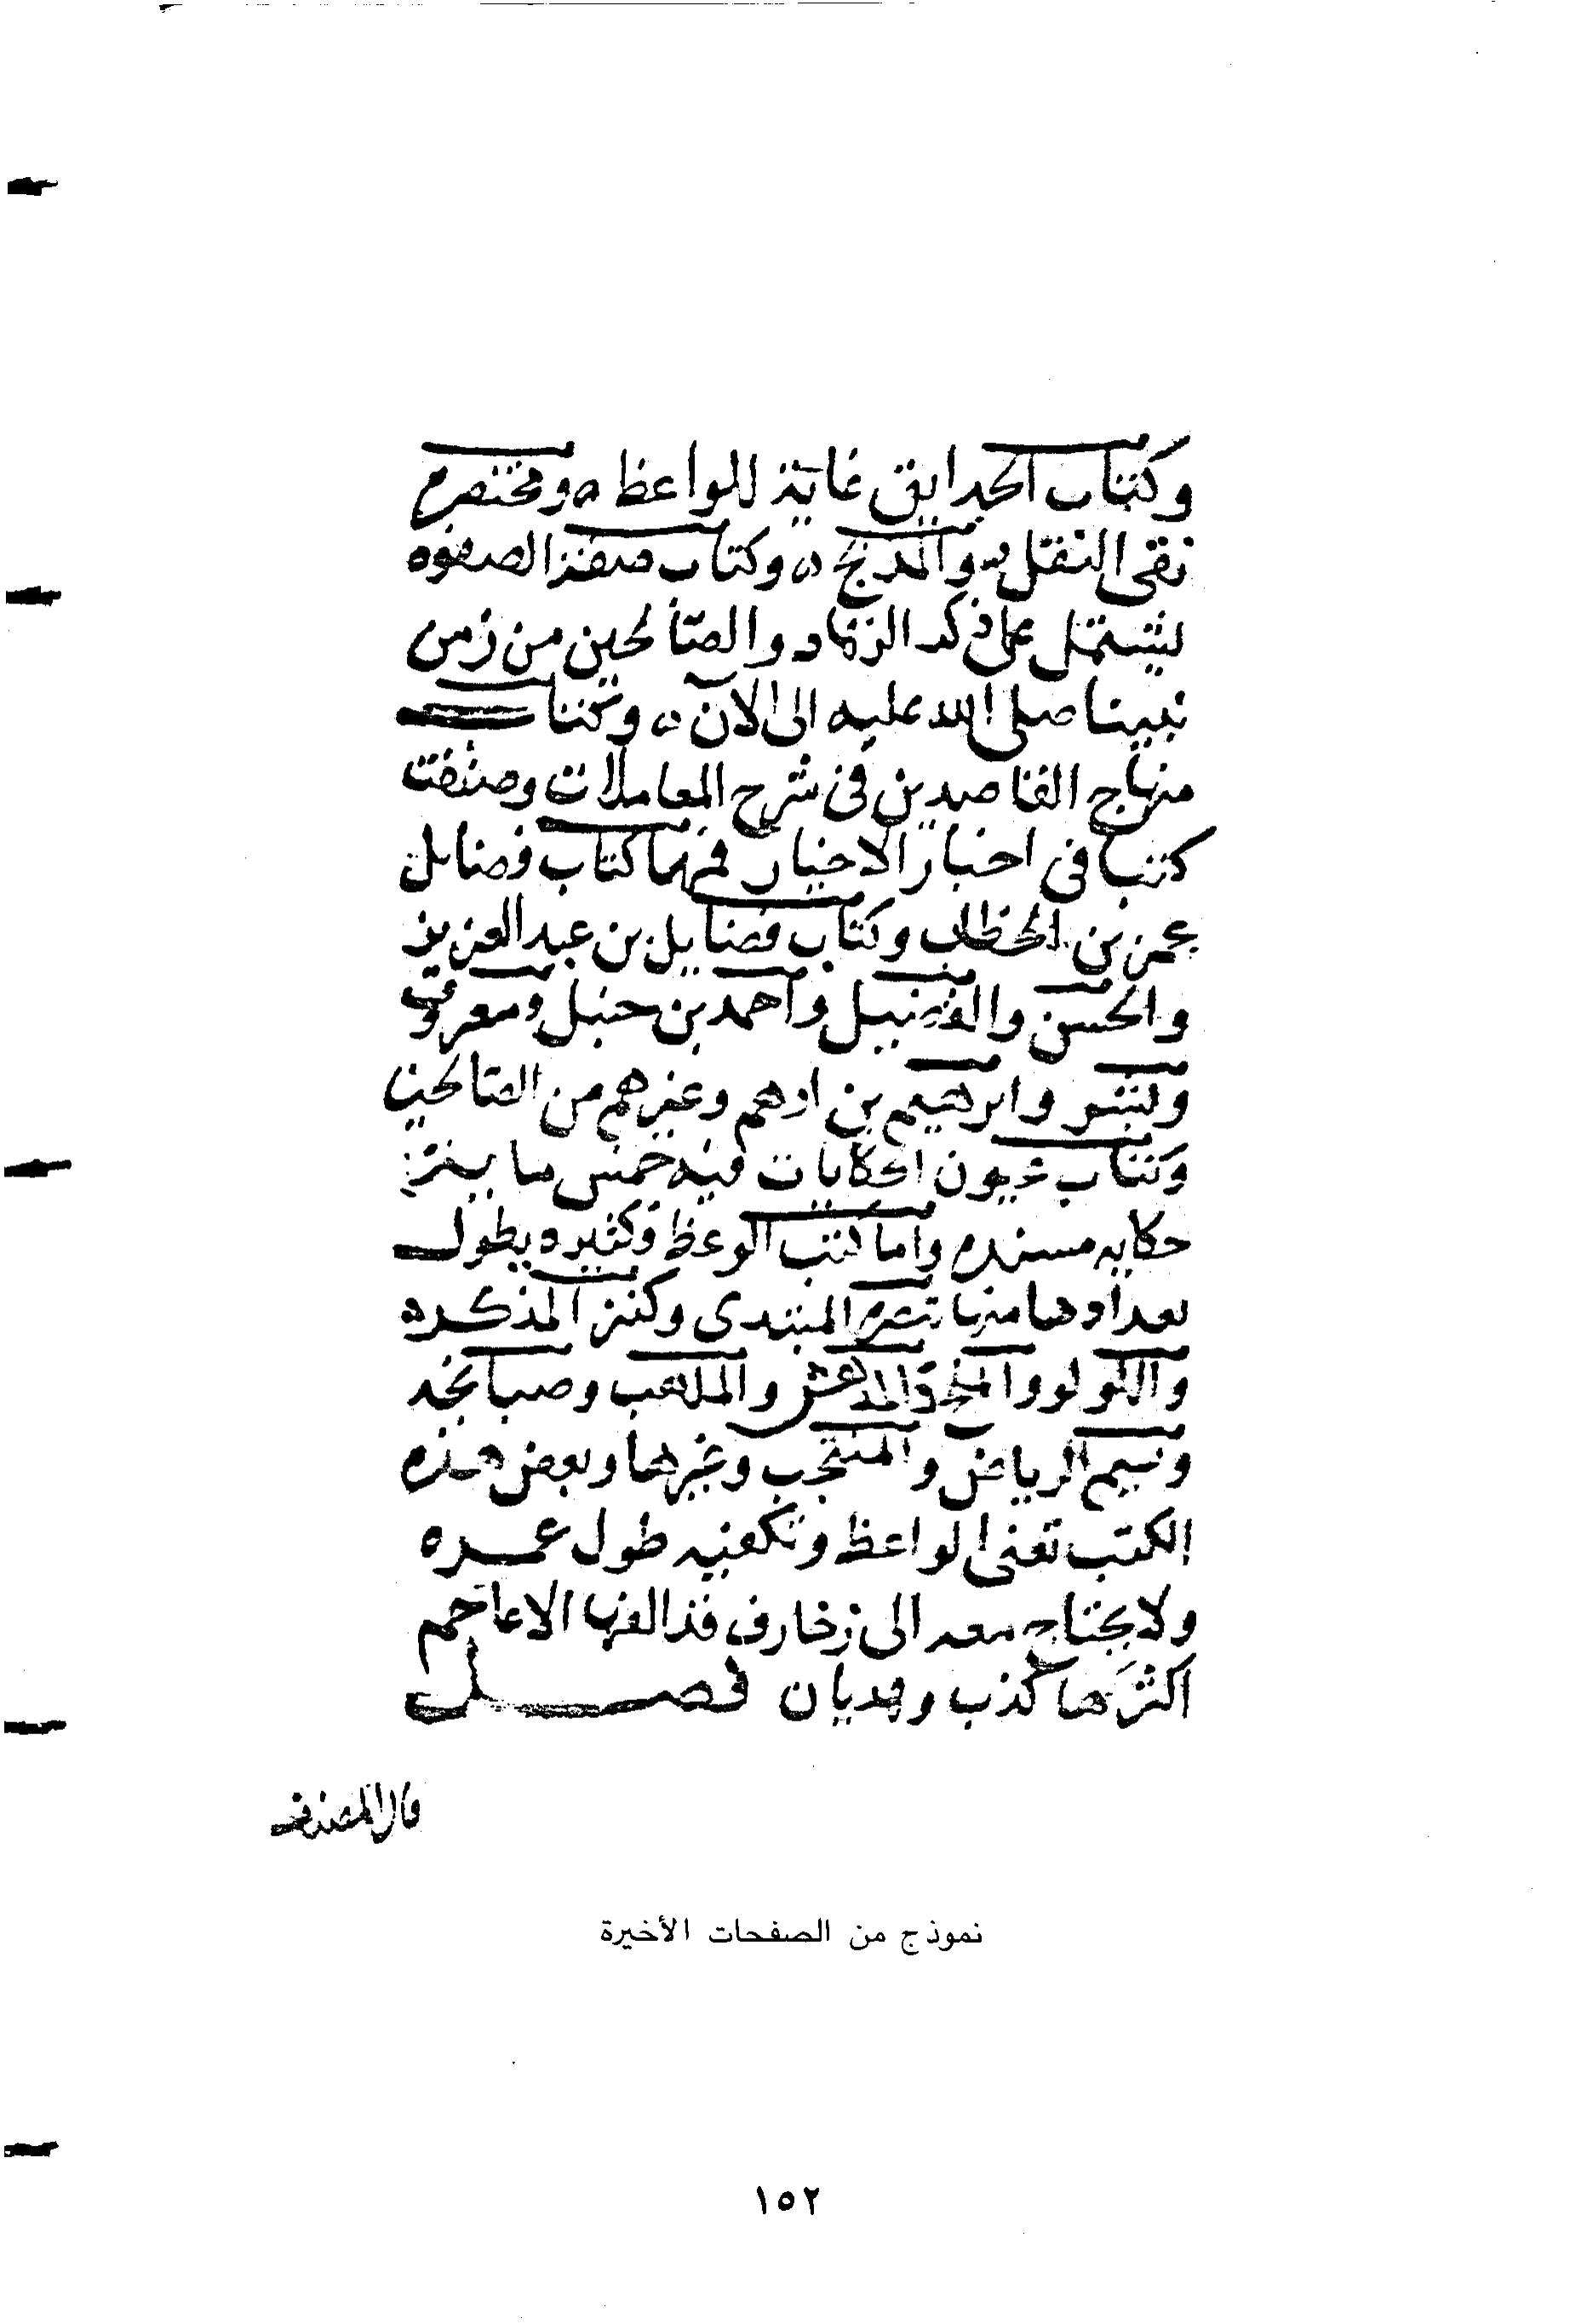 وكتاب الحدايق غاية للواعظ ومختصره
نقي النقل والمدبج وكتاب صفة الصفوه
يشتمل على ذكر الزهاد والصالحين من زمن
نبينا صلى الله عليه الى الآن وكتاب
منهاج القاصدين في شرح المعاملات وصنفت
كتبا في اخبار الاخيار فمنها كتاب فضايل
عمر بن الخطاب وكتاب فضايل بن عبد العزيز
والحسن والفضيل واحمد بن حنبل ومعروف
وبشر وابرهيم بن ادهم وغيرهم من الصالحين
وكتاب عيون الحكايات فيه خمس ماية
حكايه مسنده واما كتب الوعظ فكثيره يطول
تعدادها منها المبتدى وكنز المذكر
واللولو والملح والمدهش والملهب وصبا نجد
ونسيم الرياض والمنتخب وغيرها وبعض هذه
الكتب تغنى الواعظ وتكفيه طول عمره
ولا يحتاج معه الى زخارف قد الفها الاعاجم
اكثرها كذب وهديان فصل
قال المصنف
نموذج من الصفحات الأخيرة
١٥٢